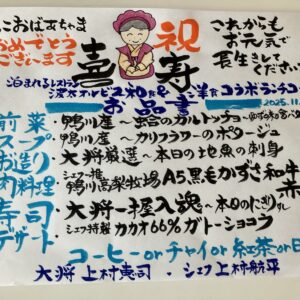 こおばあちゃま
おめでとう
ございます
祝
喜
寿
これからも
お元気で
長生きして
ください
泊まれるレストラン
洋食コラボランチコ
お品書
2025.11
前菜・鴨川産
スープ・鴨川産〜カリフラワーのポタージュ
お造り・大将厳選〜本日の地魚の刺身
肉料理・シェフ一推 鴨川高梨牧場A5黒毛かずさ和牛
寿司・大将一握入魂〜本日のにぎり
デザート・シェフ特製 カカオ66%ガトーショコラ
コーヒーorチャイor紅茶or
大将 上村恵司・シェフ上村航平